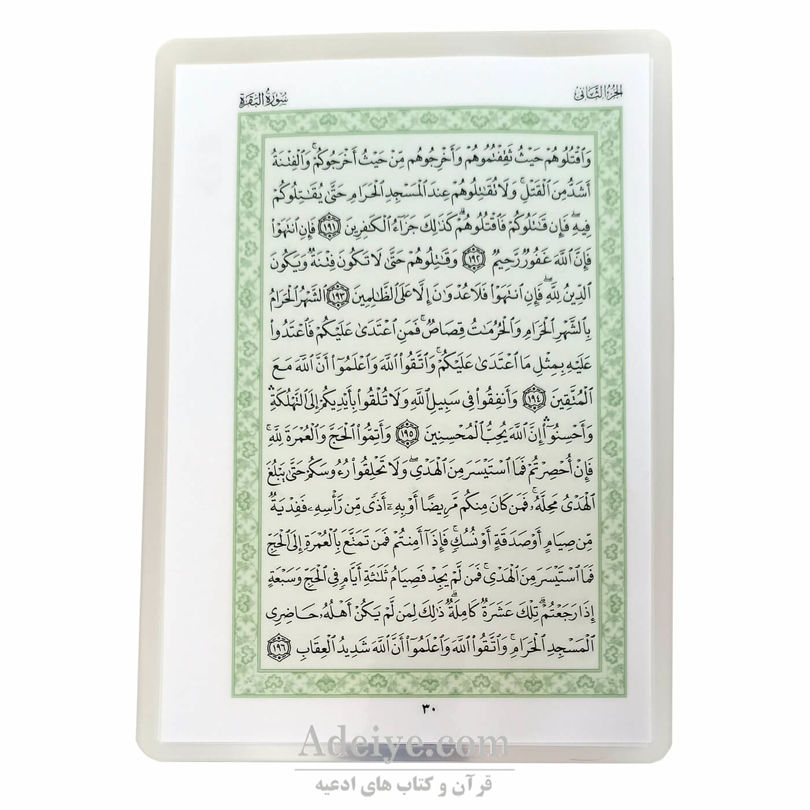 الجزء الثاني
سورة البقرة
وَاقْتُلُوهُمْ حَيْثُ ثَقِفْتُمُوهُمْ وَأَخْرِجُوهُم مِّنْ حَيْثُ أَخْرَجُوكُمْ ۚ وَالْفِتْنَةُ
أَشَدُّ مِنَ الْقَتْلِ ۚ وَلَا تُقَاتِلُوهُمْ عِندَ الْمَسْجِدِ الْحَرَامِ حَتَّىٰ يُقَاتِلُوكُمْ
فِيهِ ۖ فَإِن قَاتَلُوكُمْ فَاقْتُلُوهُمْ ۗ كَذَٰلِكَ جَزَاءُ الْكَافِرِينَ ﴿١٩١﴾ فَإِنِ انتَهَوْا
فَإِنَّ اللَّهَ غَفُورٌ رَّحِيمٌ ﴿١٩٢﴾ وَقَاتِلُوهُمْ حَتَّىٰ لَا تَكُونَ فِتْنَةٌ وَيَكُونَ
الدِّينُ لِلَّهِ ۖ فَإِنِ انتَهَوْا فَلَا عُدْوَانَ إِلَّا عَلَى الظَّالِمِينَ ﴿١٩٣﴾ الشَّهْرُ الْحَرَامُ
بِالشَّهْرِ الْحَرَامِ وَالْحُرُمَاتُ قِصَاصٌ ۚ فَمَنِ اعْتَدَىٰ عَلَيْكُمْ فَاعْتَدُوا
عَلَيْهِ بِمِثْلِ مَا اعْتَدَىٰ عَلَيْكُمْ ۚ وَاتَّقُوا اللَّهَ وَاعْلَمُوا أَنَّ اللَّهَ مَعَ
الْمُتَّقِينَ ﴿١٩٤﴾ وَأَنفِقُوا فِي سَبِيلِ اللَّهِ وَلَا تُلْقُوا بِأَيْدِيكُمْ إِلَى التَّهْلُكَةِ ۛ
وَأَحْسِنُوا ۛ إِنَّ اللَّهَ يُحِبُّ الْمُحْسِنِينَ ﴿١٩٥﴾ وَأَتِمُّوا الْحَجَّ وَالْعُمْرَةَ لِلَّهِ ۚ
فَإِنْ أُحْصِرْتُمْ فَمَا اسْتَيْسَرَ مِنَ الْهَدْيِ ۖ وَلَا تَحْلِقُوا رُءُوسَكُمْ حَتَّىٰ يَبْلُغَ
الْهَدْيُ مَحِلَّهُ ۚ فَمَن كَانَ مِنكُم مَّرِيضًا أَوْ بِهِ أَذًى مِّن رَّأْسِهِ فَفِدْيَةٌ
مِّن صِيَامٍ أَوْ صَدَقَةٍ أَوْ نُسُكٍ ۚ فَإِذَا أَمِنتُمْ فَمَن تَمَتَّعَ بِالْعُمْرَةِ إِلَى الْحَجِّ
فَمَا اسْتَيْسَرَ مِنَ الْهَدْيِ ۚ فَمَن لَّمْ يَجِدْ فَصِيَامُ ثَلَاثَةِ أَيَّامٍ فِي الْحَجِّ وَسَبْعَةٍ
إِذَا رَجَعْتُمْ ۗ تِلْكَ عَشَرَةٌ كَامِلَةٌ ۗ ذَٰلِكَ لِمَن لَّمْ يَكُنْ أَهْلُهُ حَاضِرِي
الْمَسْجِدِ الْحَرَامِ ۚ وَاتَّقُوا اللَّهَ وَاعْلَمُوا أَنَّ اللَّهَ شَدِيدُ الْعِقَابِ ﴿١٩٦﴾
٣٠
Adeiye.com
قرآن و کتاب های ادعیه